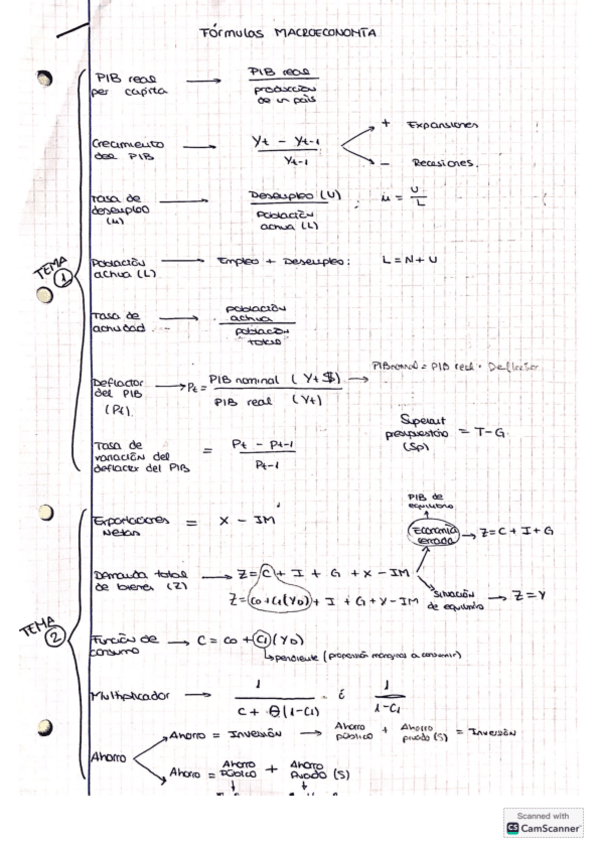 Fórmulas MACROECONOMÍA
PIB real per capita → PIB real / producción de un país
Crecimiento del PIB → Yt - Yt-1 / Yt-1
+ Expansiones
- Recesiones.
Tasa de desempleo (u) → Desempleo (U) / Población activa (L) ; u = U / L
TEMA 1
Población activa (L) → Empleo + Desempleo: L = N + U
Tasa de actividad → población activa / población total
PIBnominal = PIB real · Deflactor
Deflactor del PIB (Pt) → Pt = PIB nominal (Yt $) / PIB real (Yt) →
Superavit presupuestario (Sp) = T - G
Tasa de variación del deflactor del PIB = Pt - Pt-1 / Pt-1
PIB de equilibrio
Exportaciones Netas = X - IM
Economía cerrada → Z = C + I + G
Demanda total de bienes (Z) → Z = C + I + G + X - IM
Z = (co + c1(YD)) + I + G + X - IM
Situación de equilibrio → Z = Y
TEMA 2
Función de consumo → C = co + c1(YD)
pendiente (propensión marginal a consumir)
Multiplicador → 1 / C + θ(1 - C1) ó 1 / 1 - C1
Ahorro
Ahorro = Inversión → Ahorro público + Ahorro privado (S) = Inversión
Ahorro = Ahorro Público + Ahorro Privado (S)
Scanned with
CS CamScanner